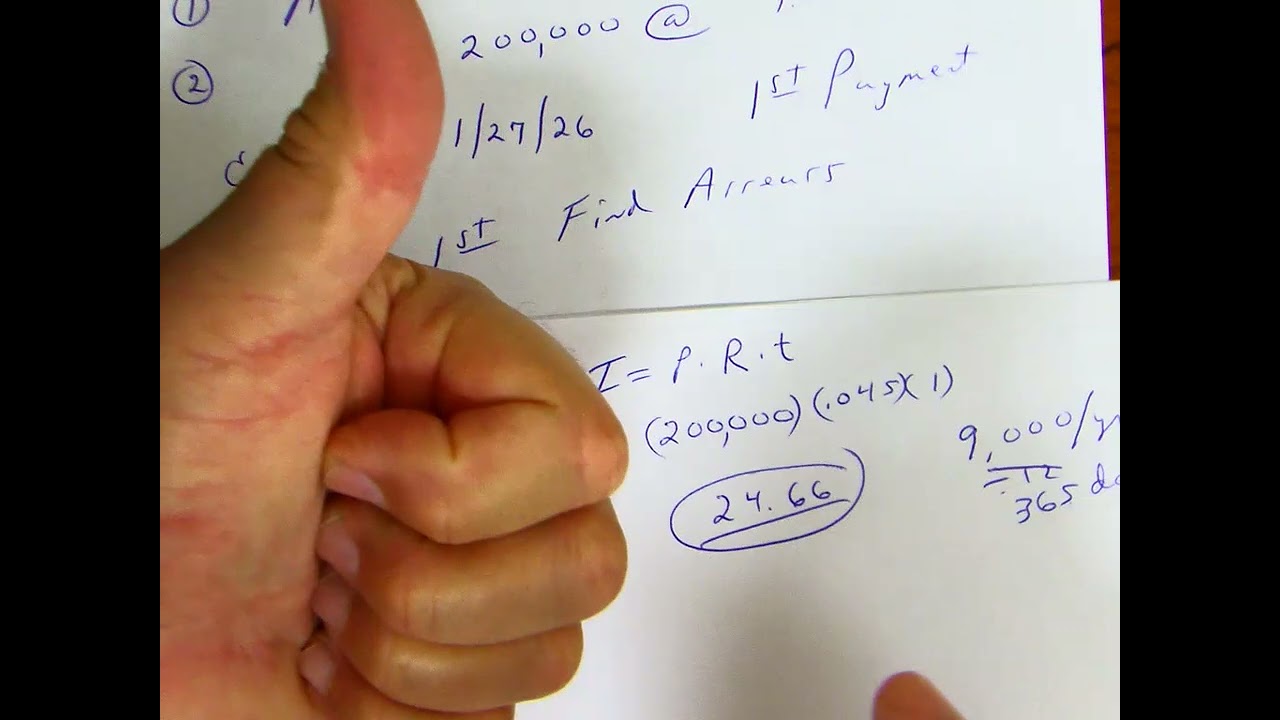 ①
200,000 @
②
1/27/26
1st Payment
1st Find Arrears
I = P. R. t
(200,000) (.045)( 1 )
9,000/y
24.66
365 da